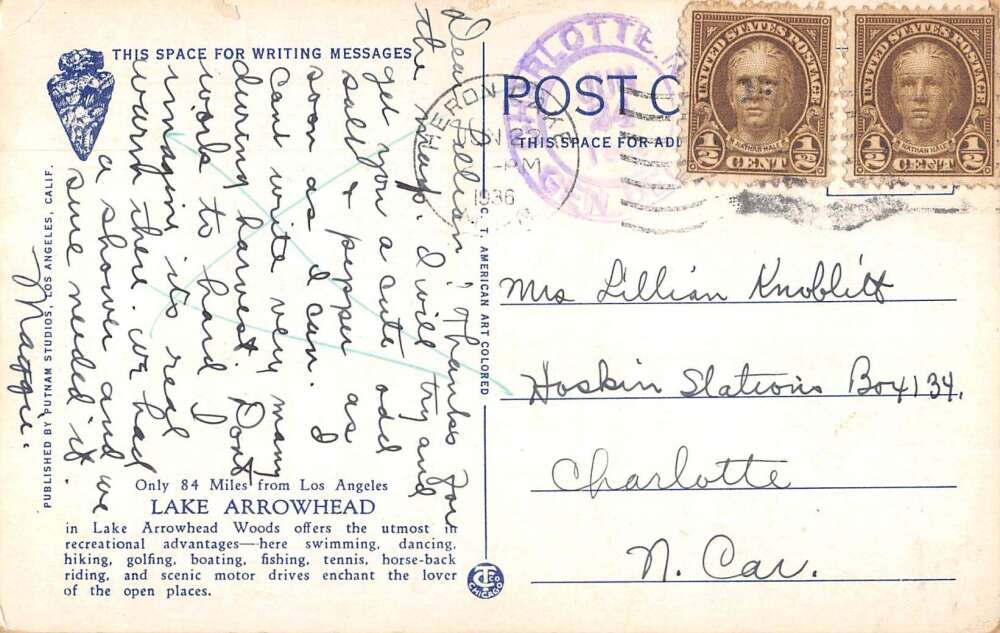 THIS SPACE FOR WRITING MESSAGES
Dear Lillian, Thanks for
the map. I will try and
get you a cute odd
salt & pepper as
soon as I can. I
cant write very many
during harvest. Dont
work to hard I
imagine its real
warm there. we had
a shower and we
sure needed it.
Maggie.
PUBLISHED BY PUTNAM STUDIOS, LOS ANGELES, CALIF.
Only 84 Miles from Los Angeles
LAKE ARROWHEAD
in Lake Arrowhead Woods offers the utmost in
recreational advantages—here swimming, dancing,
hiking, golfing, boating, fishing, tennis, horse-back
riding, and scenic motor drives enchant the lover
of the open places.
C. T. AMERICAN ART COLORED
POST C
THIS SPACE FOR ADD
HERON LAKE
22
PM
1936
CHARLOTTE, N.
GEN.
UNITED STATES POSTAGE
NATHAN HALE
1/2 CENT 1/2
UNITED STATES POSTAGE
NATHAN HALE
1/2 CENT 1/2
Mrs Lillian Knoblitt
Hoskin Stations Box 134.
Charlotte
N. Car.
CT CO
CHICAGO